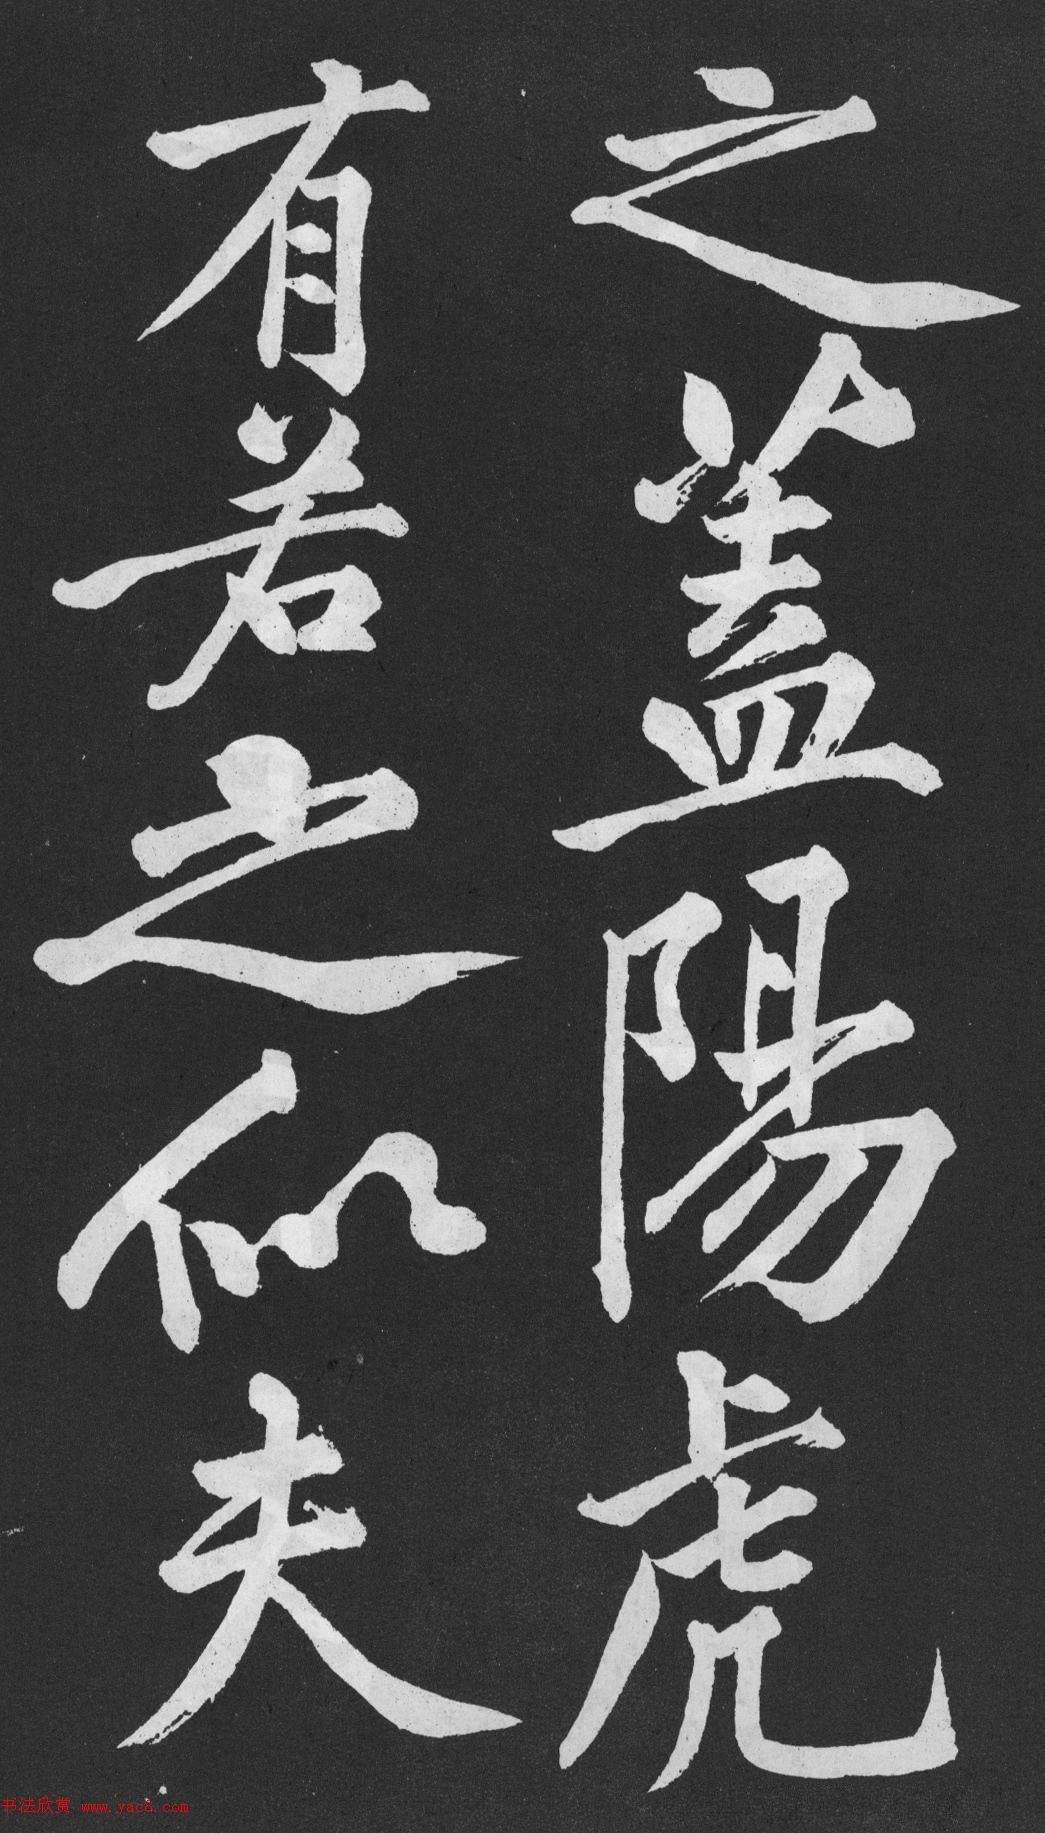 之盖陽虎
有若之似夫
书法欣赏 www.yac8.com